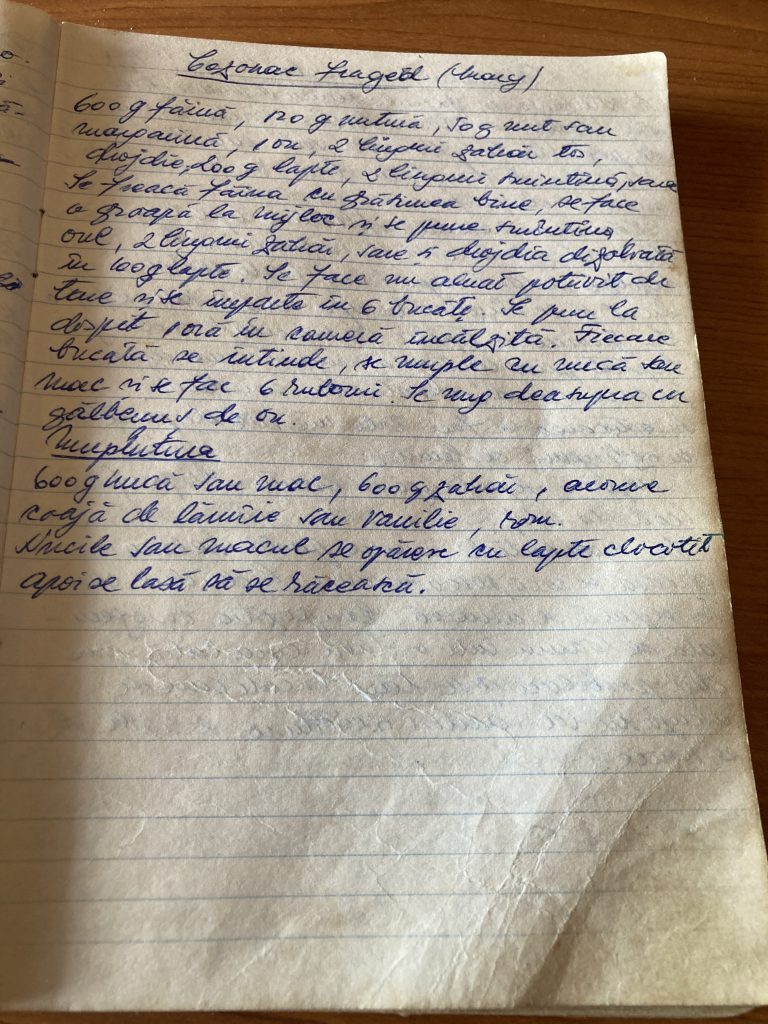 Cozonac fraged
600 g făină, 120 g untură, 50 g unt sau
margarină, 1 ou, 2 linguri zahăr tos,
drojdie, 200 g lapte, 2 linguri smîntînă, sare
Se freacă făina cu grăsimea bine, se face
o groapă la mijloc și se pune smîntîna,
oul, 2 linguri zahăr, sare și drojdia dizolvată
în 100 g lapte. Se face un aluat potrivit de
tare și se imparte în 6 bucăți. Se pune la
dospit 1 oră în cameră încălzită. Fiecare
bucată se intinde, se umple cu nucă sau
mac și se fac 6 rulouri. Se ung deasupra cu
gălbenuș de ou.
Umplutura
600 g nucă sau mac, 600 g zahăr, arome
coajă de lămîie sau vanilie, rom.
Nucile sau macul se opăresc cu lapte clocotit
apoi se lasă să se răcească.